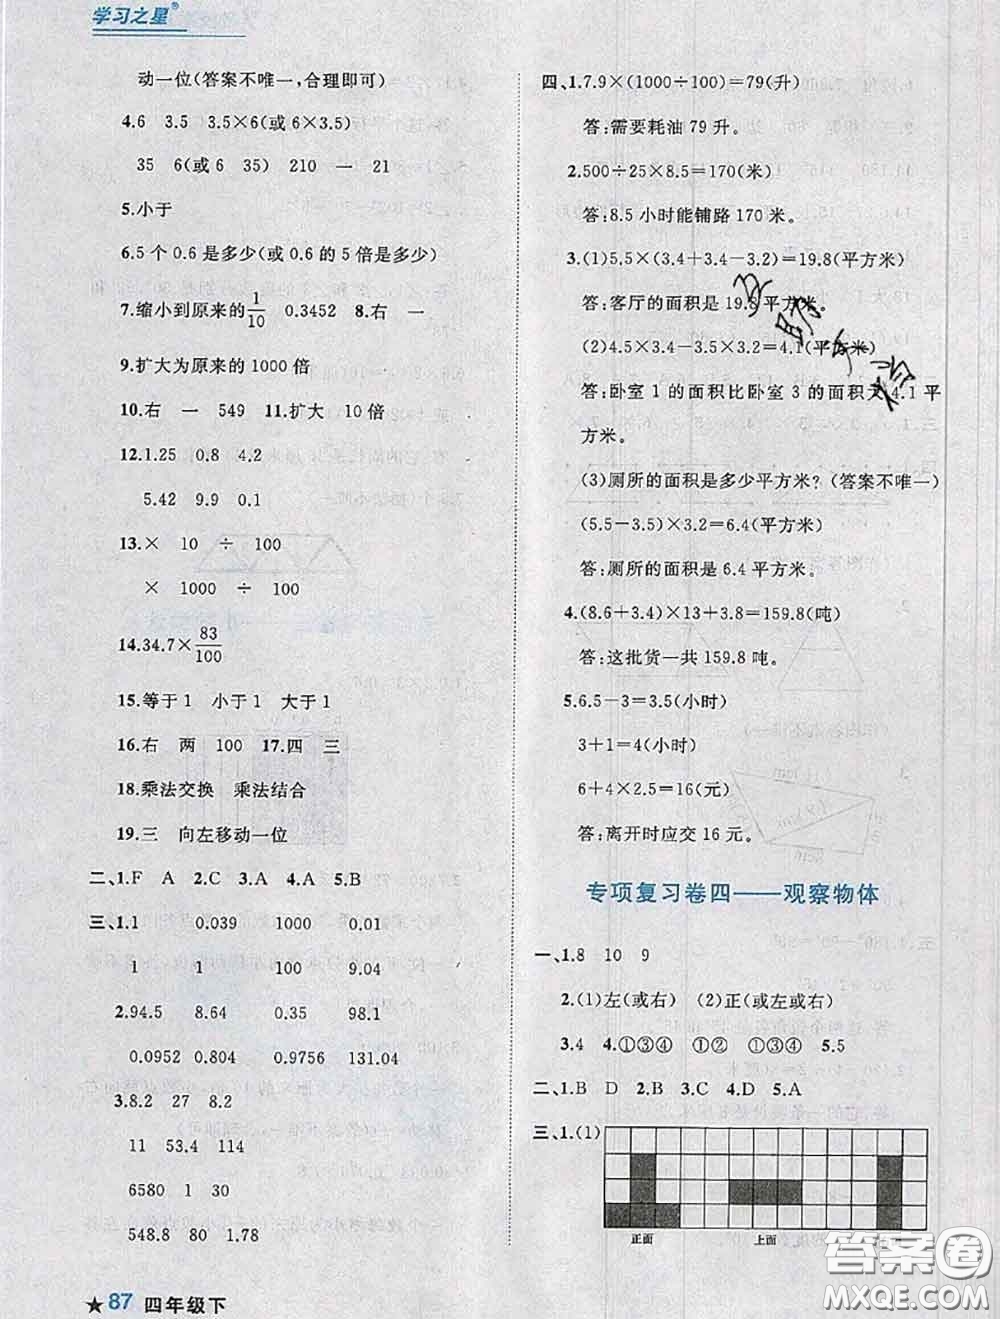 学习之星®
动一位(答案不唯一,合理即可)
4.6 3.5 3.5×6(或 6×3.5)
35 6(或 6 35) 210 一 21
5.小于
6.5 个 0.6 是多少(或 0.6 的 5 倍是多少)
7.缩小到原来的1/10 0.3452 8.右 一
9.扩大为原来的 1000 倍
10.右 一 549 11.扩大 10 倍
12.1.25 0.8 4.2
5.42 9.9 0.1
13.× 10 ÷ 100
× 1000 ÷ 100
14.34.7×83/100
15.等于 1 小于 1 大于 1
16.右 两 100 17.四 三
18.乘法交换 乘法结合
19.三 向左移动一位
二、1.F A 2.C 3.A 4.A 5.B
三、1.1 0.039 1000 0.01
1 1 100 9.04
2.94.5 8.64 0.35 98.1
0.0952 0.804 0.9756 131.04
3.8.2 27 8.2
11 53.4 114
6580 1 30
548.8 80 1.78
★ 87 四年级下
四、1.7.9×(1000÷100)=79(升)
答:需要耗油 79 升。
2.500÷25×8.5=170(米)
答:8.5 小时能铺路 170 米。
3.(1)5.5×(3.4+3.4-3.2)=19.8(平方米)
答:客厅的面积是 19.8 平方米。
(2)4.5×3.4-3.5×3.2=4.1(平方米)
答:卧室 1 的面积比卧室 3 的面积大 4.1 平
方米。
(3)厕所的面积是多少平方米?(答案不唯一)
(5.5-3.5)×3.2=6.4(平方米)
答:厕所的面积是 6.4 平方米。
4.(8.6+3.4)×13+3.8=159.8(吨)
答:这批货一共 159.8 吨。
5.6.5-3=3.5(小时)
3+1=4(小时)
6+4×2.5=16(元)
答:离开时应交 16 元。
专项复习卷四——观察物体
一、1.8 10 9
2.(1)左(或右) (2)正(或左或右)
3.4 4.①③④ ② ①③④ 5.5
二、1.B D 2.B 3.C 4.D 5.A
三、1.(1)
正面 上面
答案卷
MXQE.COM